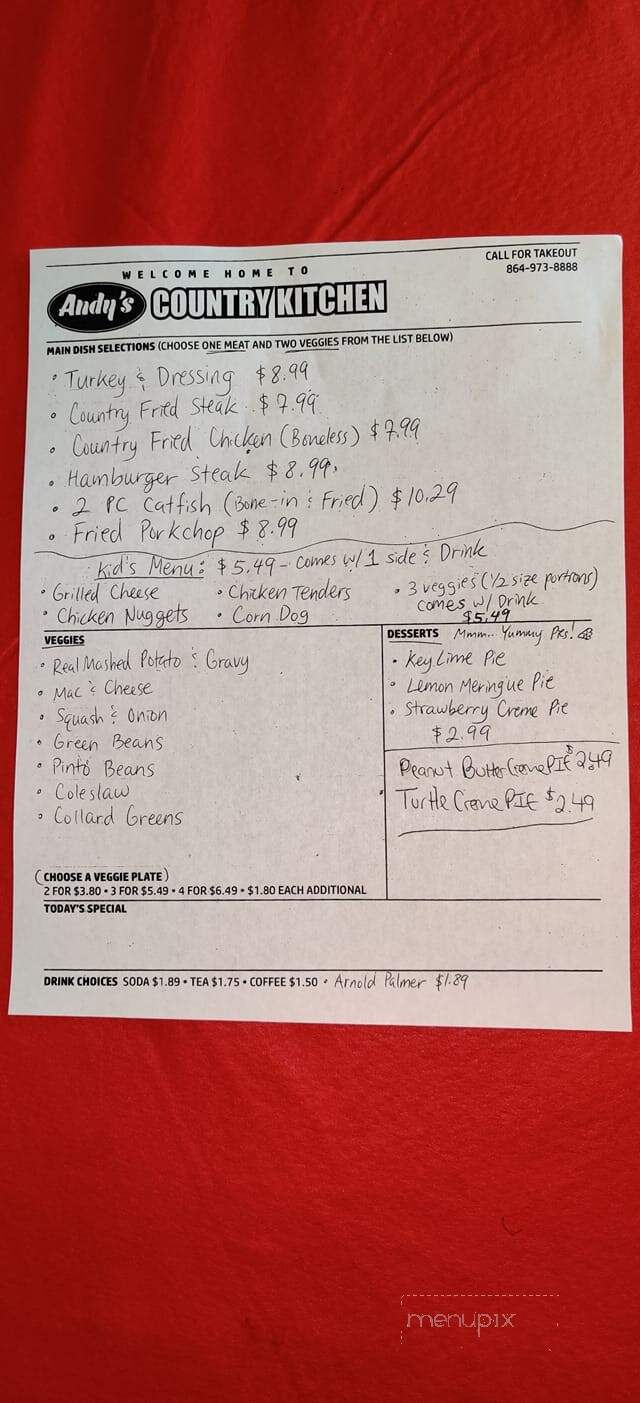 WELCOME HOME TO
CALL FOR TAKEOUT
864-973-8888
Andy's COUNTRY KITCHEN
MAIN DISH SELECTIONS (CHOOSE ONE MEAT AND TWO VEGGIES FROM THE LIST BELOW)
• Turkey & Dressing $8.99
• Country Fried Steak $7.99
• Country Fried Chicken (Boneless) $7.99
• Hamburger Steak $8.99
• 2 PC Catfish (Bone-in & Fried) $10.29
• Fried Porkchop $8.99
Kid's Menu: $5.49 - comes w/ 1 side & Drink
• Grilled Cheese • Chicken Tenders • 3 veggies (1/2 size portions)
• Chicken Nuggets • Corn Dog comes w/ Drink
$5.49
VEGGIES
• Real Mashed Potato & Gravy
• Mac & Cheese
• Squash & Onion
• Green Beans
• Pinto Beans
• Coleslaw
• Collard Greens
(CHOOSE A VEGGIE PLATE)
2 FOR $3.80 • 3 FOR $5.49 • 4 FOR $6.49 • $1.80 EACH ADDITIONAL
DESSERTS Mmm... Yummy Pies!
• Key Lime Pie
• Lemon Meringue Pie
• Strawberry Creme Pie
$2.99
Peanut Butter Creme PIE $2.49
Turtle Creme PIE $2.49
TODAY'S SPECIAL
DRINK CHOICES SODA $1.89 • TEA $1.75 • COFFEE $1.50 • Arnold Palmer $1.89
menupix